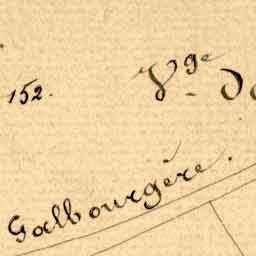 152. Vge
Galbourgère.